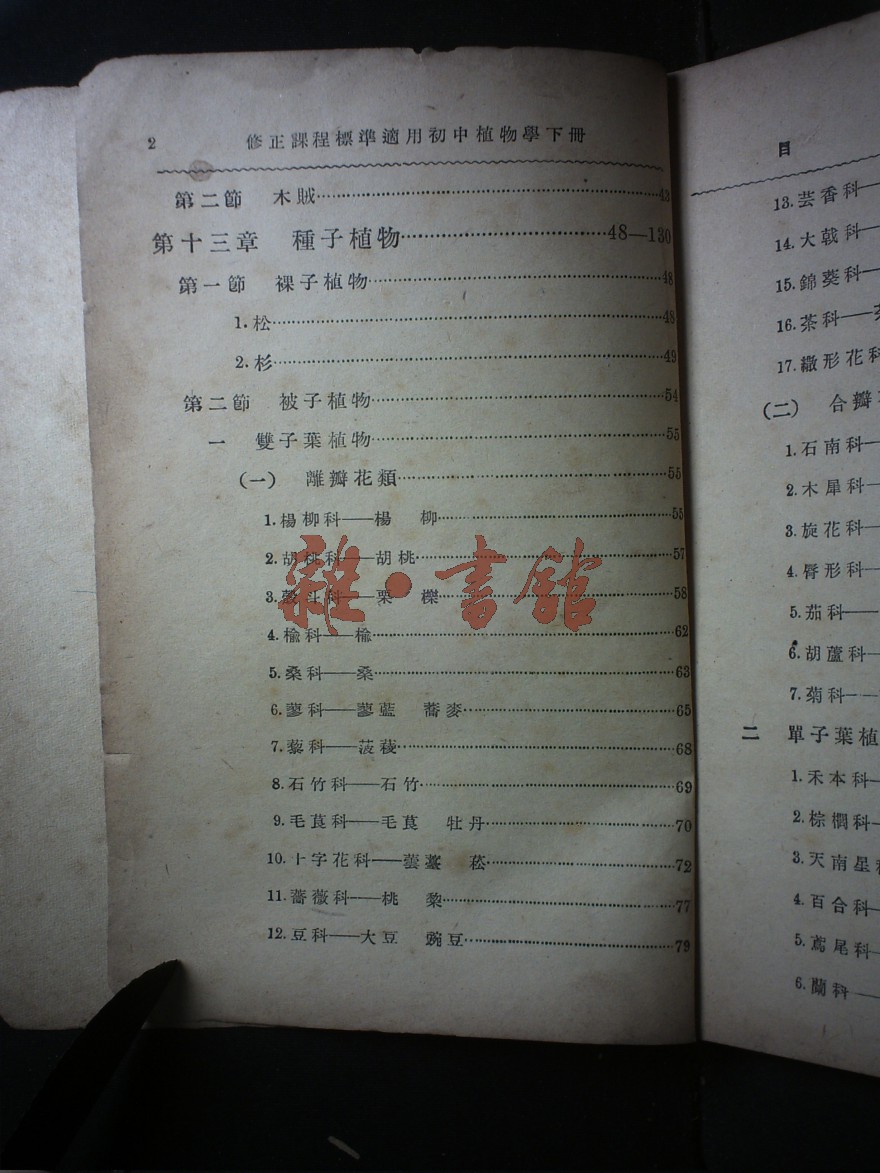 2 修正課程標準適用初中植物學下冊
第二節 木賊 43
第十三章 種子植物 48—130
第一節 裸子植物 48
1. 松 48
2. 杉 49
第二節 被子植物 54
一 雙子葉植物 55
(一) 離瓣花類 55
1. 楊柳科——楊 柳 55
2. 胡桃科——胡桃 57
3. 殼斗科——栗 櫟 58
4. 榆科——榆 62
5. 桑科——桑 63
6. 蓼科——蓼藍 蕎麥 65
7. 藜科——菠薐 68
8. 石竹科——石竹 69
9. 毛茛科——毛茛 牡丹 70
10. 十字花科——蕓薹 菘 72
11. 薔薇科——桃 棃 77
12. 豆科——大豆 豌豆 79
雜·書館
目
13. 芸香科—
14. 大戟科—
15. 錦葵科—
16. 茶科——
17. 繖形花科
(二) 合瓣
1. 石南科—
2. 木犀科—
3. 旋花科—
4. 脣形科—
5. 茄科——
6. 胡蘆科—
7. 菊科——
二 單子葉植
1. 禾本科—
2. 棕櫚科—
3. 天南星科
4. 百合科—
5. 鳶尾科—
6. 蘭科—